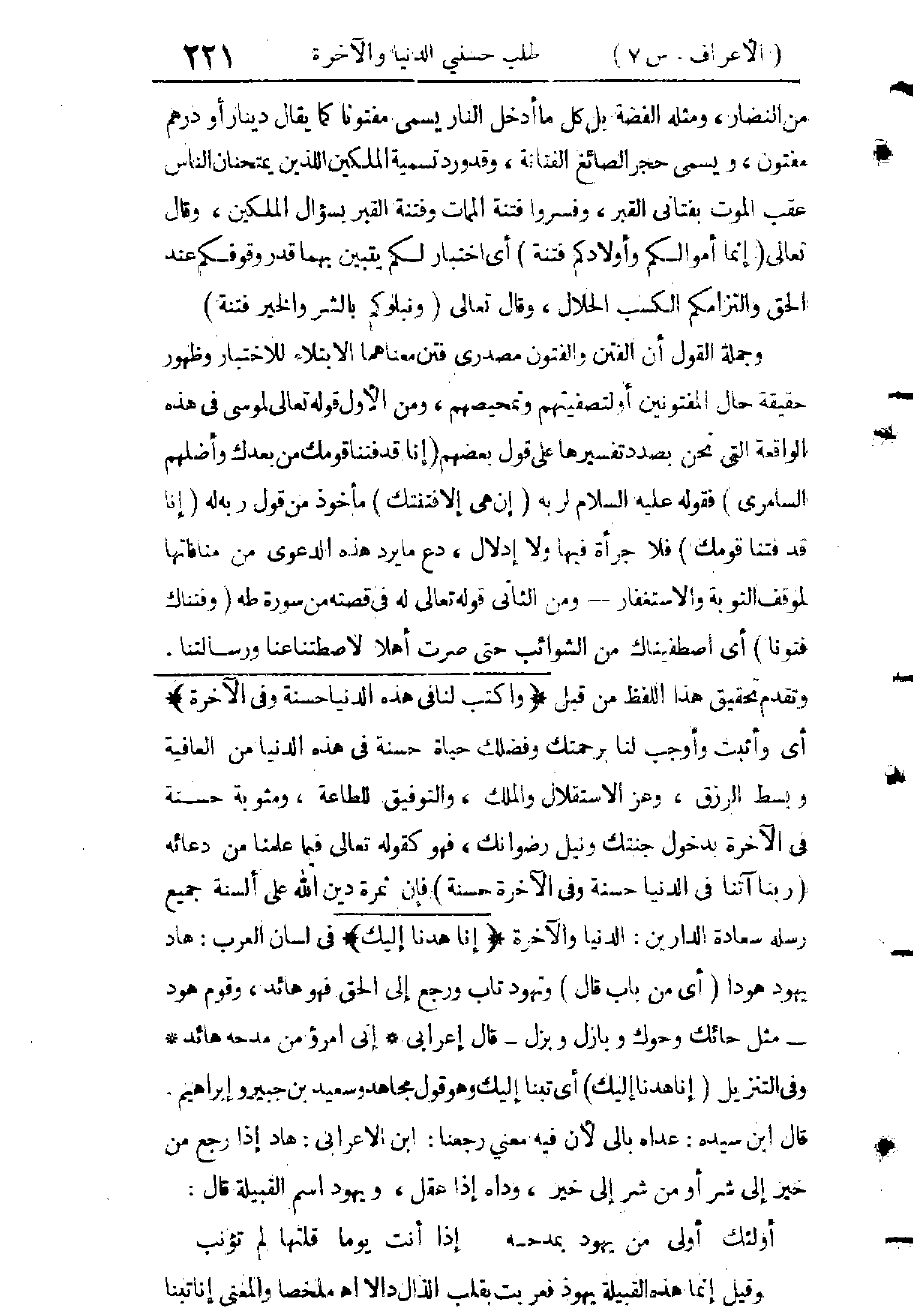 ( الأعراف . س ٧ ) طلب حسنتي الدنيا والآخرة ٢٢١
من النضار ، ومثله الفضة بل كل ما أدخل النار يسمى مفتونا كما يقال دينار أو درهم
مفتون ، ويسمى حجر الصائغ الفتانة ، وقد ورد تسمية الملكين اللذين يمتحنان الناس
عقب الموت بفتاني القبر ، وفسروا فتنة الممات وفتنة القبر بسؤال الملكين ، وقال
تعالى ( إنما أموالكم وأولادكم فتنة ) أى اختبار لكم يتبين بهما قدر وقوفكم عند
الحق والتزامكم الكسب الحلال ، وقال تعالى ( ونبلوكم بالشر والخير فتنة )
وجملة القول أن الفتن والفتون مصدرى فتن معناهما الابتلاء للاختبار وظهور
حقيقة حال المفتونين أو لتصفيتهم وتمحيصهم ، ومن الأول قوله تعالى لموسى فى هذه
الواقعة التي نحن بصدد تفسيرها على قول بعضهم ( إنا قد فتنا قومك من بعدك وأضلهم
السامرى ) فقوله عليه السلام لربه ( إن هى إلا فتنتك ) مأخوذ من قول ربه له ( إنا
قد فتنا قومك ) فلا جرأة فيها ولا إدلال ، دع ما يرد هذه الدعوى من منافاتها
لموقف التوبة والاستغفار — ومن الثانى قوله تعالى له فى قصته من سورة طه ( وفتناك
فتونا ) أى اصطفيناك من الشوائب حتى صرت أهلا لاصطناعنا ورسالتنا .
وتقدم تحقيق هذا اللفظ من قبل ﴿ واكتب لنا فى هذه الدنيا حسنة وفى الآخرة ﴾
أى وأثبت وأوجب لنا برحمتك وفضلك حياة حسنة فى هذه الدنيا من العافية
وبسط الرزق ، وعز الاستقلال والملك ، والتوفيق للطاعة ، ومثوبة حسنة
فى الآخرة بدخول جنتك ونيل رضوانك ، فهو كقوله تعالى فيما علمنا من دعائه
( ربنا آتنا فى الدنيا حسنة وفى الآخرة حسنة ) فإن ثمرة دين الله على ألسنة جميع
رسله سعادة الدارين : الدنيا والآخرة ﴿ إنا هدنا إليك ﴾ فى لسان العرب : هاد
يهود هودا ( أى من باب قال ) وتهود تاب ورجع إلى الحق فهو هائد ، وقوم هود
ــ مثل حائك وحوك وبازل وبزل ــ قال إعرابى * إنى امرؤ من مدحه هائد *
وفى التنزيل ( إنا هدنا إليك ) أى تبنا إليك وهو قول مجاهد وسعيد بن جبير وإبراهيم .
قال ابن سيده : عداه بالى لأن فيه معني رجعنا : ابن الاعرابى : هاد إذا رجع من
خير إلى شر أو من شر إلى خير ، وداه إذا عقل ، ويهود اسم القبيلة قال :
أولئك أولى من يهود بمدحه إذا أنت يوما قلتها لم تؤنب
وقيل إنما هذه القبيلة يهوذ فعربت بقلب الذال دالا اه ملخصا والمعنى إنا تبنا